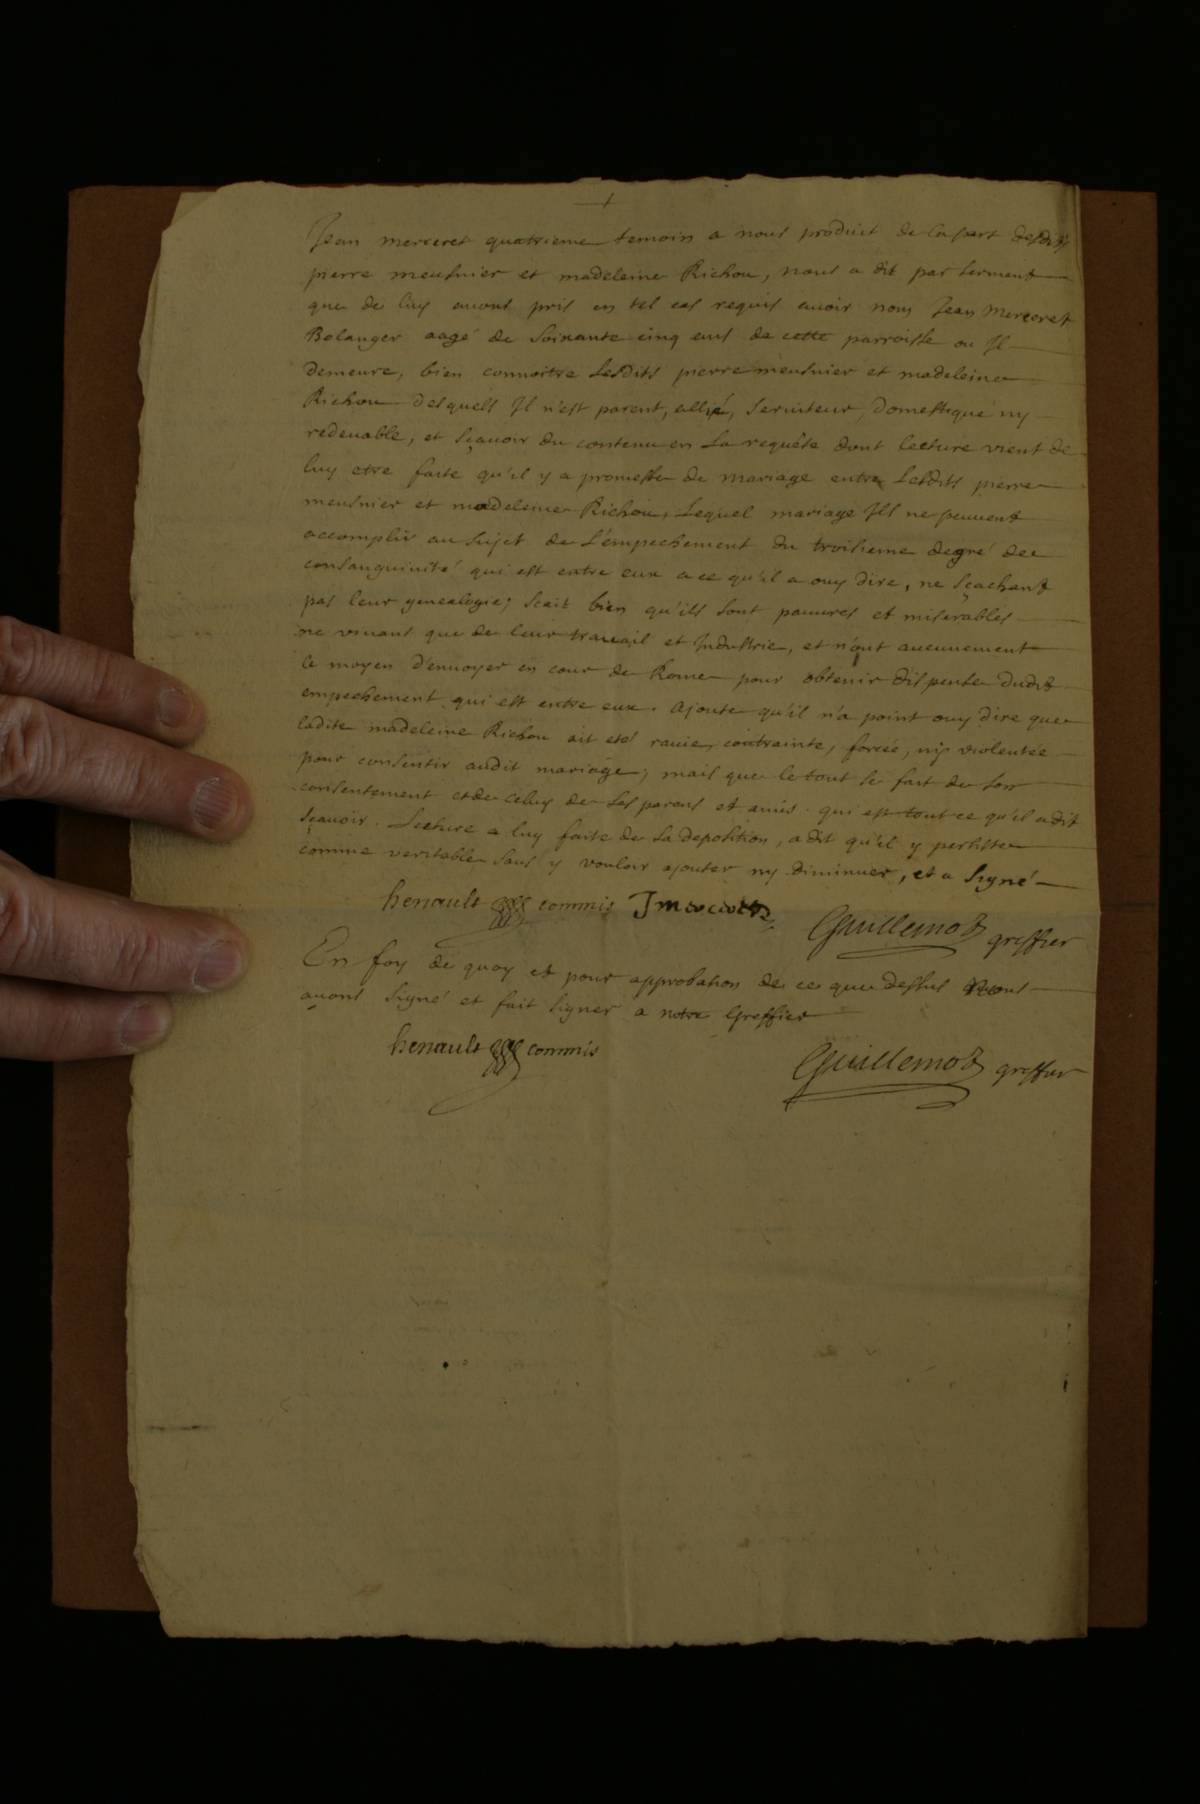 Jean merceret quatrieme temoin a nous produit de la part desdits
pierre meusnier et madeleine Richou, nous a dit par serment
que de luy avons pris en tel cas requis avoir nom Jean Merceret
Bolanger aagé de soixante cinq ans de cette parroisse ou Il
demeure, bien connoitre lesdits pierre meusnier et madeleine
Richou desquels Il n'est parent, allié, serviteur, domestique ny
redevable, et sçavoir du contenu en la requête dont lecture vient de
luy etre faite qu'il y a promesse de mariage entre lesdits pierre
meusnier et madeleine Richou, lequel mariage Ils ne peuvent
accomplir au sujet de l'empechement du troisieme degré de
consanguinité qui est entre eux a ce qu'il a ouy dire, ne sçachant
pas leur genealogie; scait bien qu'ils sont pauvres et miserables
ne vivans que de leur travail et Industrie, et n'ont aucunement
le moyen d'envoyer en cour de Rome pour obtenir dispense dudit
empechement qui est entre eux. Ajoute qu'il n'a point ouy dire que
ladite madeleine Richou ait eté ravie, contrainte, forcée, ny violentée
pour consentir audit mariage; mais que le tout se fait de son
consentement et de celuy de ses parens et amis. qui est tout ce qu'il a dit
sçavoir. Lecture a luy faite de sa deposition, a dit qu'il y persiste
comme veritable sans y vouloir ajouter ny diminuer, et a signé
henault commis Guillemot greffier
En foy de quoy et pour approbation de ce que dessus Nous
avons signé et fait signer a notre Greffier
henault commis Guillemot greffier